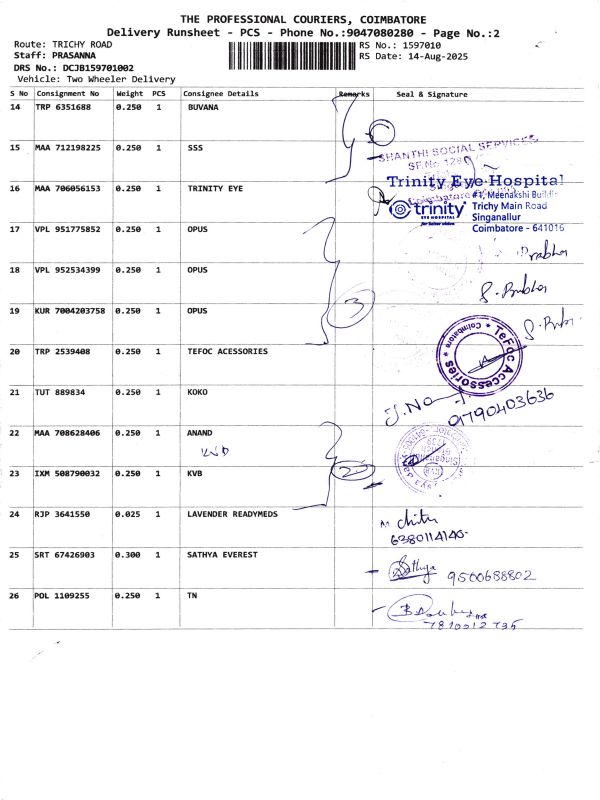 THE PROFESSIONAL COURIERS, COIMBATORE
Delivery Runsheet - PCS - Phone No.:9047080280 - Page No.:2
Route: TRICHY ROAD
RS No.: 1597010
Staff: PRASANNA
RS Date: 14-Aug-2025
DRS No.: DCJB159701002
Vehicle: Two Wheeler Delivery
S No Consignment No Weight PCS Consignee Details Remarks Seal & Signature
14 TRP 6351688 0.250 1 BUVANA
15 MAA 712198225 0.250 1 SSS
SHANTHI SOCIAL SERVICES
16 MAA 706056153 0.250 1 TRINITY EYE
Trinity Eye Hospital
#1, Meenakshi
trinity
EYE HOSPITAL
for better vision
Trichy Main Road
Singanallur
Coimbatore - 641016
17 VPL 951775852 0.250 1 OPUS
Prabha
18 VPL 952534399 0.250 1 OPUS
19 KUR 7004203758 0.250 1 OPUS
3
20 TRP 2539408 0.250 1 TEFOC ACESSORIES
TeFoc Accessories * Coimbatore *
21 TUT 889834 0.250 1 KOKO
9790403636
22 MAA 708628406 0.250 1 ANAND
23 IXM 508790032 0.250 1 KVB
2
24 RJP 3641550 0.025 1 LAVENDER READYMEDS
6380114140
25 SRT 67426903 0.300 1 SATHYA EVEREST
Sathya 9500688802
26 POL 1109255 0.250 1 TN